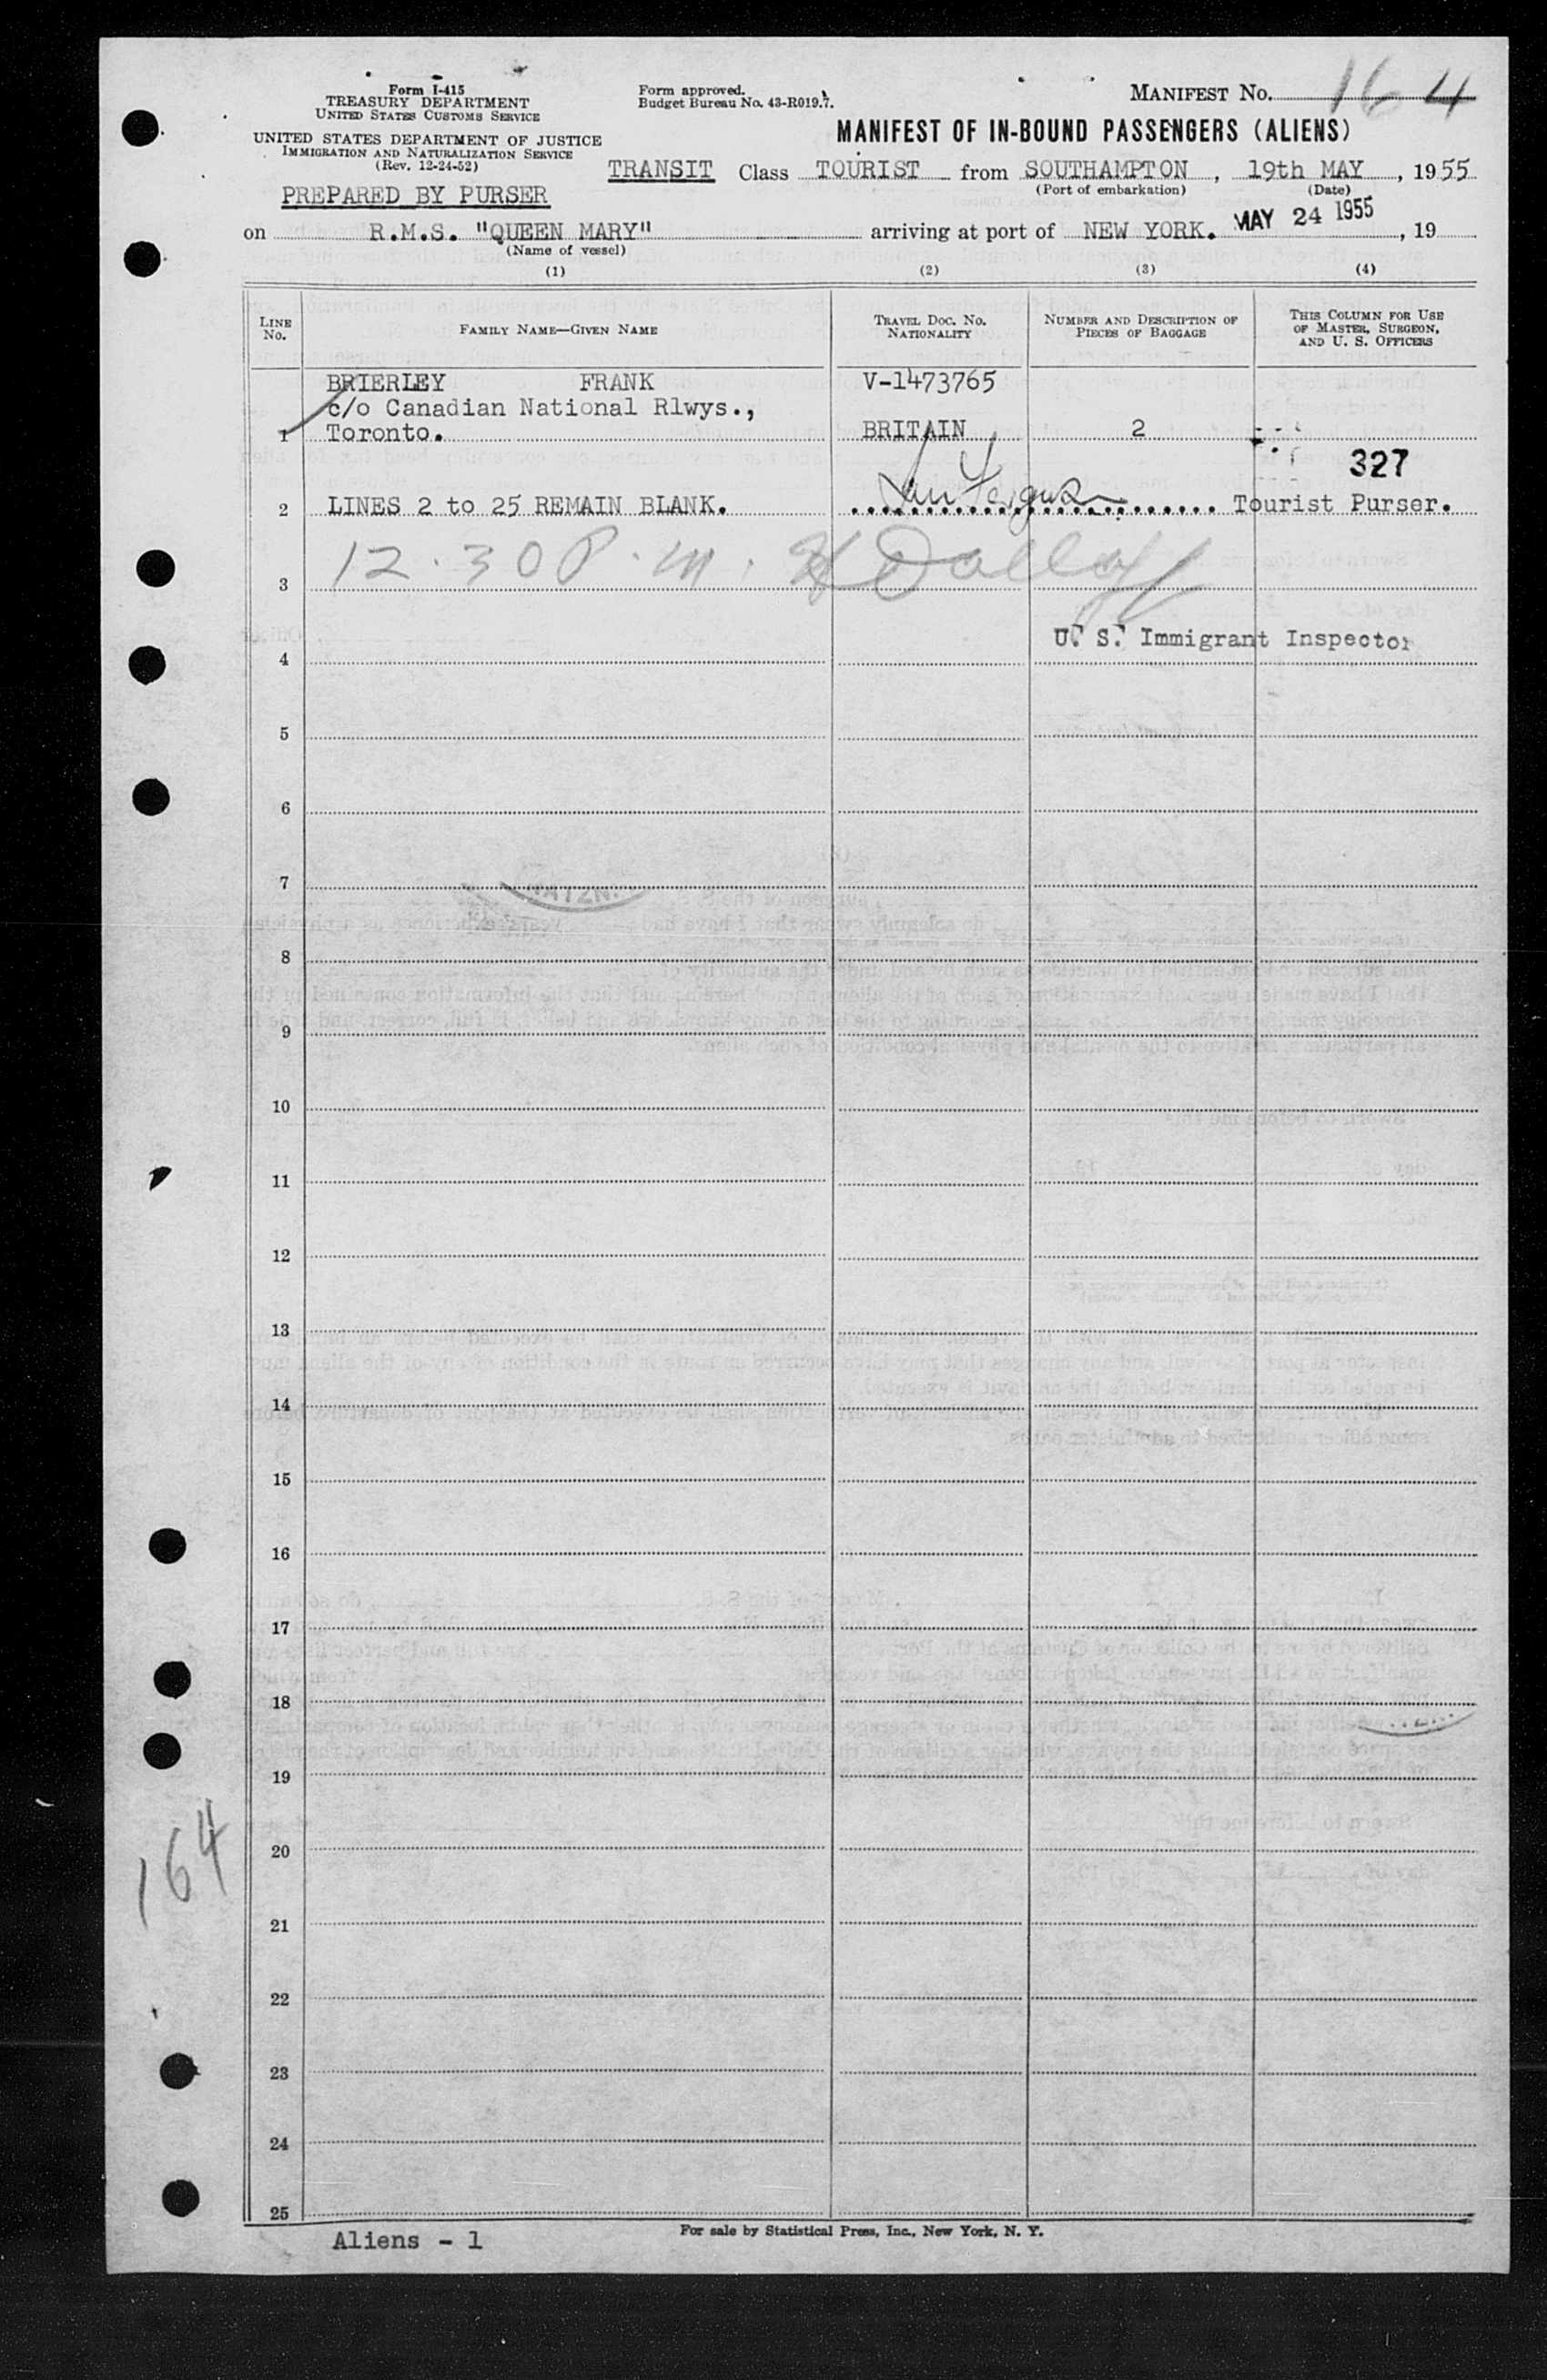 Form I-415
TREASURY DEPARTMENT
UNITED STATES CUSTOMS SERVICE
UNITED STATES DEPARTMENT OF JUSTICE
IMMIGRATION AND NATURALIZATION SERVICE
(Rev. 12-24-52)
PREPARED BY PURSER
Form approved.
Budget Bureau No. 43-R019.7.
MANIFEST No. 164
MANIFEST OF IN-BOUND PASSENGERS (ALIENS)
TRANSIT Class TOURIST from SOUTHAMPTON, 19th MAY, 1955
(Port of embarkation) (Date)
on R.M.S. "QUEEN MARY" arriving at port of NEW YORK. MAY 24 1955, 19
(Name of vessel)
(1) (2) (3) (4)
LINE No. FAMILY NAME—GIVEN NAME TRAVEL DOC. No. NATIONALITY NUMBER AND DESCRIPTION OF PIECES OF BAGGAGE THIS COLUMN FOR USE OF MASTER, SURGEON, AND U. S. OFFICERS
BRIERLEY FRANK V-1473765
c/o Canadian National Rlwys.,
1 Toronto. BRITAIN 2
327
2 LINES 2 to 25 REMAIN BLANK. Tourist Purser.
3 12.30 P.m.
U. S. Immigrant Inspector
4
5
6
7
8
9
10
11
12
13
14
15
16
17
18
19
164
20
21
22
23
24
25
Aliens - 1
For sale by Statistical Press, Inc., New York, N. Y.